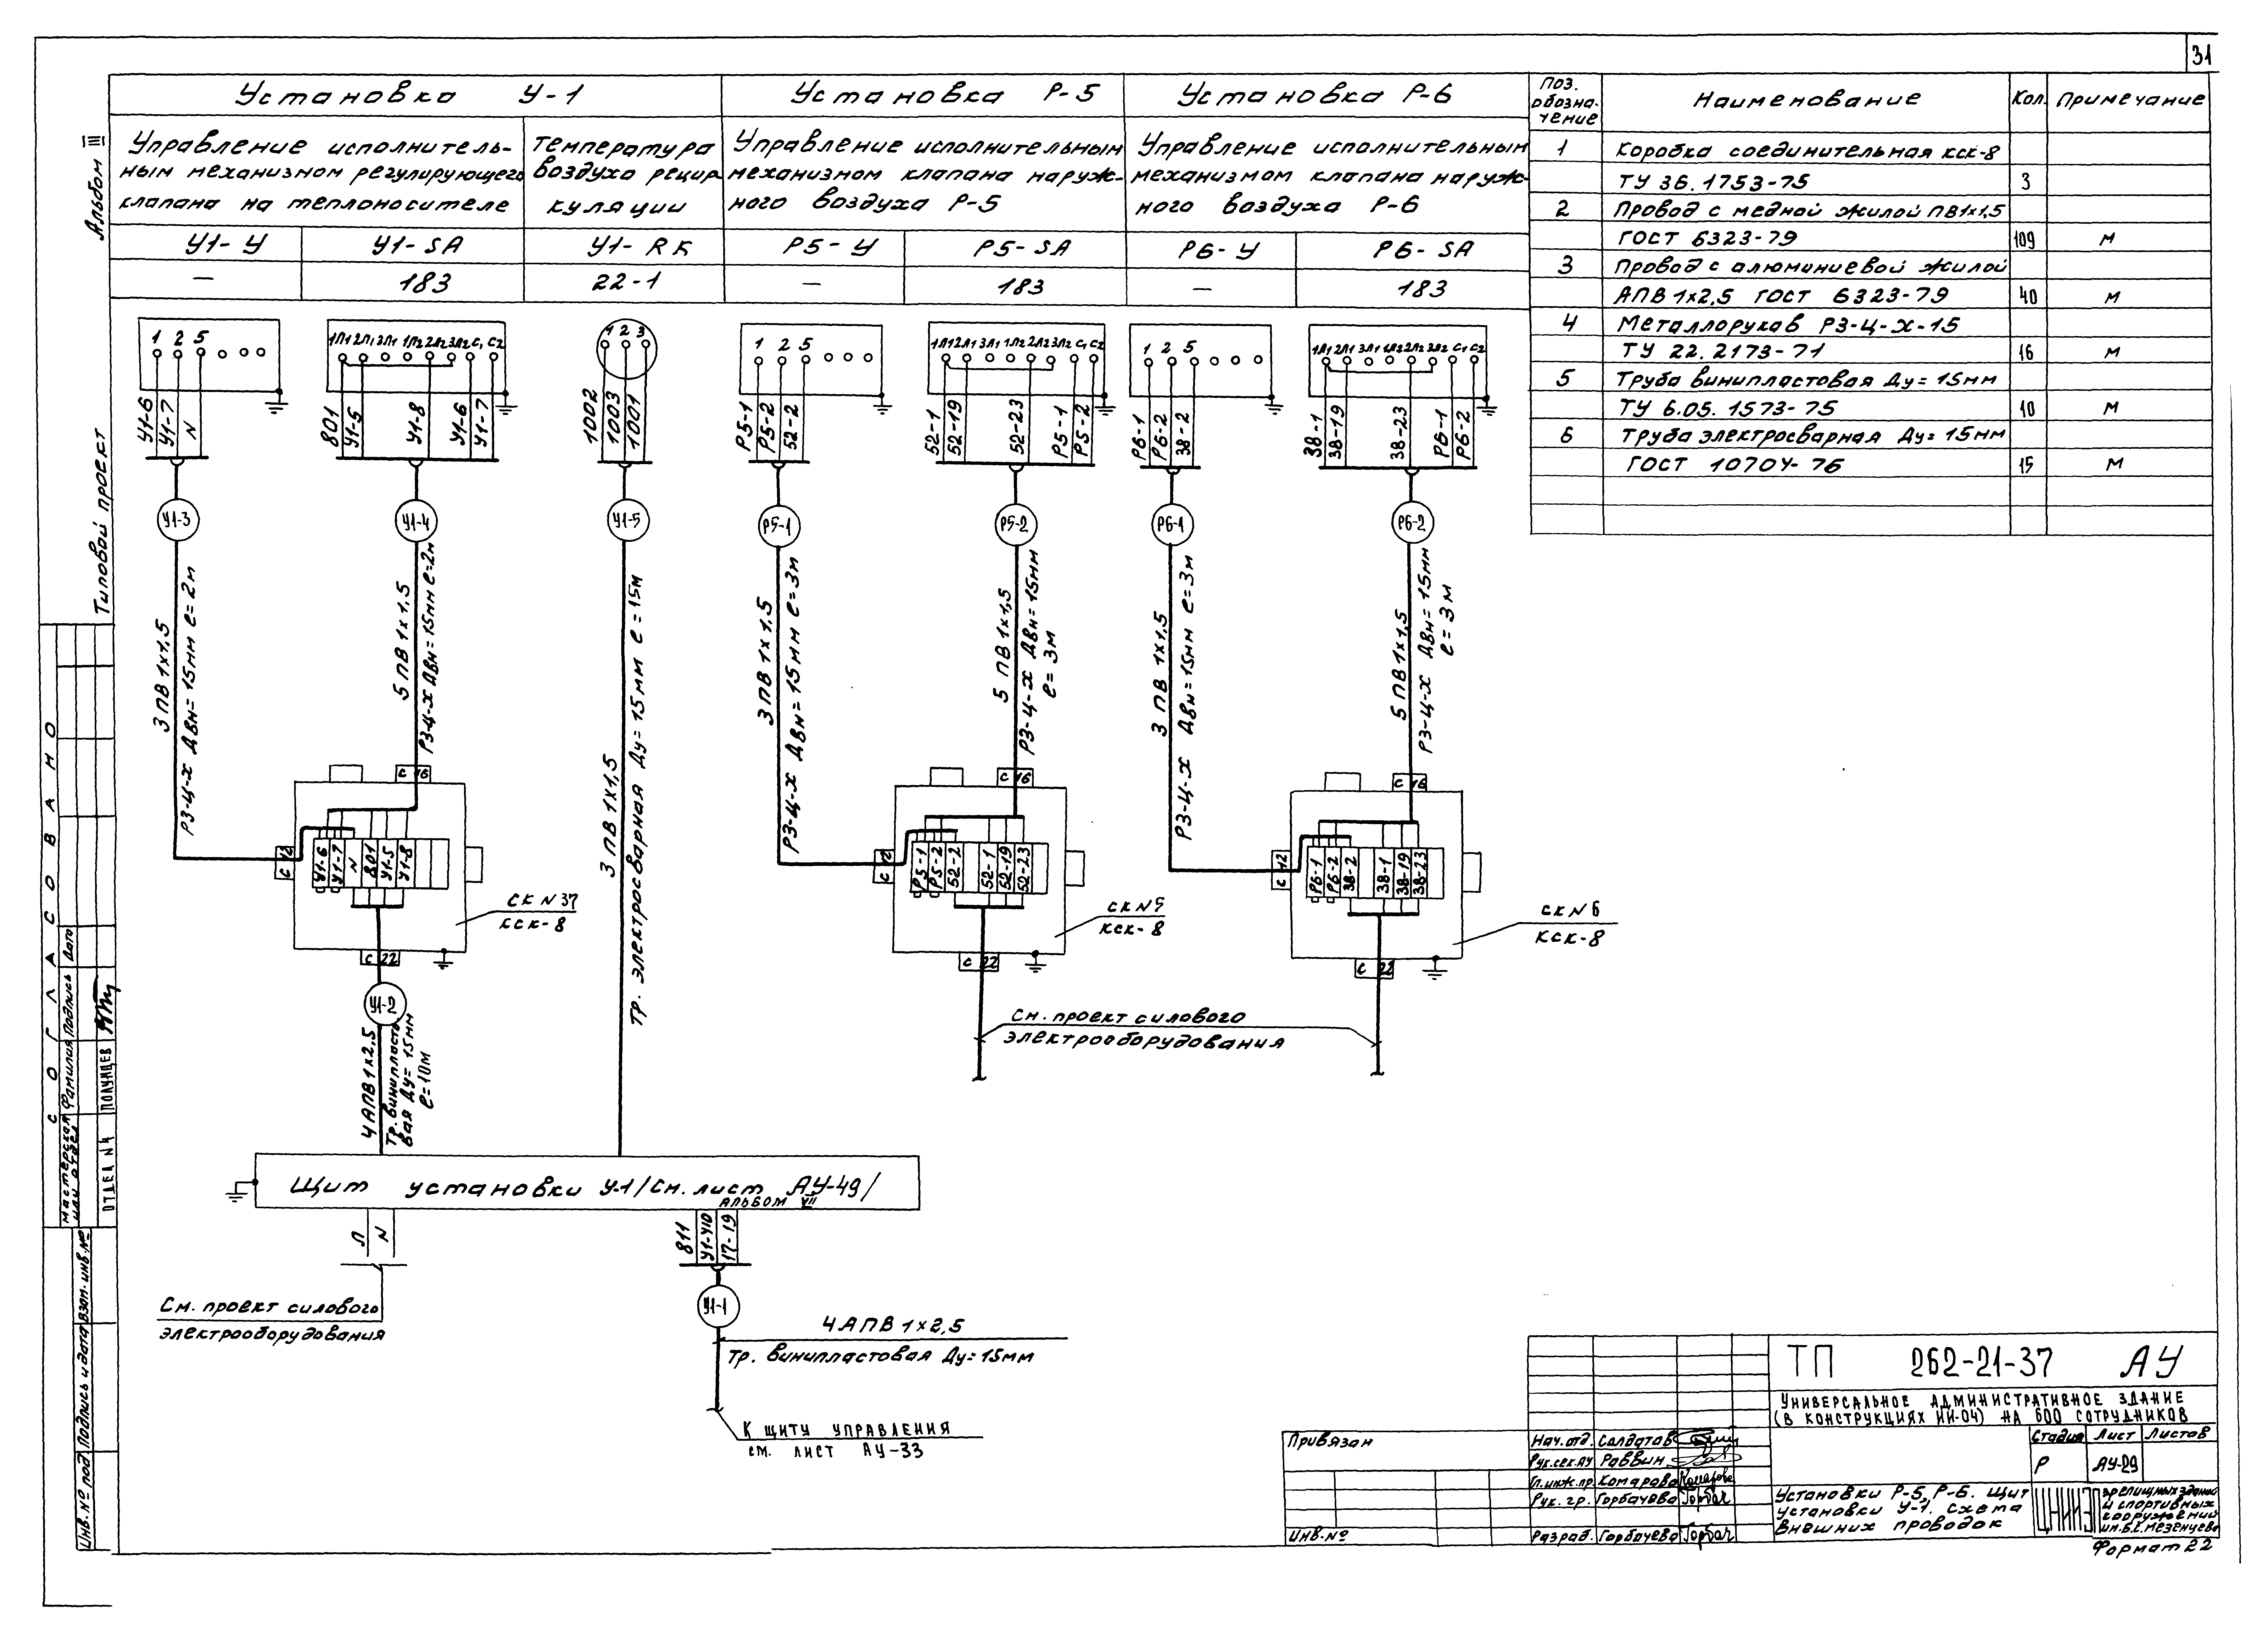 31
Альбом III
Типовой проект
Установка У-1
Установка Р-5
Установка Р-6
Управление исполнитель-
ным механизмом регулирующего
клапана на теплоносителе
Температура
воздуха рецир
куляции
Управление исполнительным
механизмом клапана наруж-
ного воздуха Р-5
Управление исполнительным
механизмом клапана наруж-
ного воздуха Р-6
У1-У
У1-SA
У1-RK
Р5-У
Р5-SA
Р6-У
Р6-SA
—
183
22-1
—
183
—
183
Поз. обозна-
чение
Наименование
Кол.
Примечание
1 Коробка соединительная КСК-8
ТУ 36.1753-75 3
2 Провод с медной жилой ПВ1х1,5
ГОСТ 6323-79 109 м
3 Провод с алюминиевой жилой
АПВ 1х2,5 ГОСТ 6323-79 40 м
4 Металлорукав РЗ-Ц-Х-15
ТУ 22.2173-71 16 м
5 Труба винипластовая Ду=15мм
ТУ 6.05.1573-75 10 м
6 Труба электросварная Ду=15мм
ГОСТ 10704-76 15 м
1 2 5
1Л1 2Л1 3Л1 1Л2 2Л2 3Л2 С1 С2
1 2 3
1 2 5
1Л1 2Л1 3Л1 1Л2 2Л2 3Л2 С1 С2
1 2 5
1Л1 2Л1 3Л1 1Л2 2Л2 3Л2 С1 С2
У1-6
У1-7
N
801
У1-5
У1-8
У1-6
У1-7
1002
1003
1001
Р5-1
Р5-2
52-2
52-1
52-19
52-23
Р5-1
Р5-2
Р6-1
Р6-2
38-2
38-1
38-19
38-23
Р6-1
Р6-2
У1-3
У1-4
У1-5
Р5-1
Р5-2
Р6-1
Р6-2
3 ПВ 1х1,5
РЗ-Ц-Х Двн=15мм ℓ=2м
5 ПВ 1х1,5
РЗ-Ц-Х Двн=15мм ℓ=2м
3 ПВ 1х1,5
Тр. электросварная Ду=15мм ℓ=15м
3 ПВ 1х1,5
РЗ-Ц-Х Двн=15мм ℓ=3м
5 ПВ 1х1,5
РЗ-Ц-Х Двн=15мм
ℓ=3м
3 ПВ 1х1,5
РЗ-Ц-Х Двн=15мм ℓ=3м
5 ПВ 1х1,5
РЗ-Ц-Х Двн=15мм
ℓ=3м
С 16
С 12
У1-6
У1-7
N
801
У1-5
У1-8
С 22
СК N 37
КСК-8
С 16
С 12
Р5-1
Р5-2
52-2
52-1
52-19
52-23
С 22
СК N 5
КСК-8
С 16
С 12
Р6-1
Р6-2
38-2
38-1
38-19
38-23
С 22
СК N 6
КСК-8
См. проект силового
электрооборудования
У1-2
4 АПВ 1х2,5
Тр. винипласто
вая Ду=15мм
ℓ=10м
Щит установки У-1 /См. лист АУ-49/
Альбом VII
Л
N
См. проект силового
электрооборудования
811
У1-У10
17-19
У1-1
4 АПВ 1х2,5
Тр. винипластовая Ду=15мм
К щиту управления
см. лист АУ-33
СОГЛАСОВАНО
Мастерская
или отдел
Фамилия
Подпись
Дата
Отдел N4
Полунцев
Инв. № подл
Подпись и дата
Взам. инв. №
Привязан
Инв. №
Нач. отд. Солдатов
Рук. сек. АУ Раввин
Гл. инж. пр. Комарова
Рук. гр. Горбачева
Разраб. Горбачева
ТП 262-21-37 АУ
Универсальное административное здание
(в конструкциях ИИ-04) на 600 сотрудников
Стадия Лист Листов
Р АУ-29
Установки Р-5, Р-6. Щит
установки У-1. Схема
внешних проводок
ЦНИИЭП
зрелищных зданий
и спортивных
сооружений
им. Б.С. Мезенцева
Формат 22